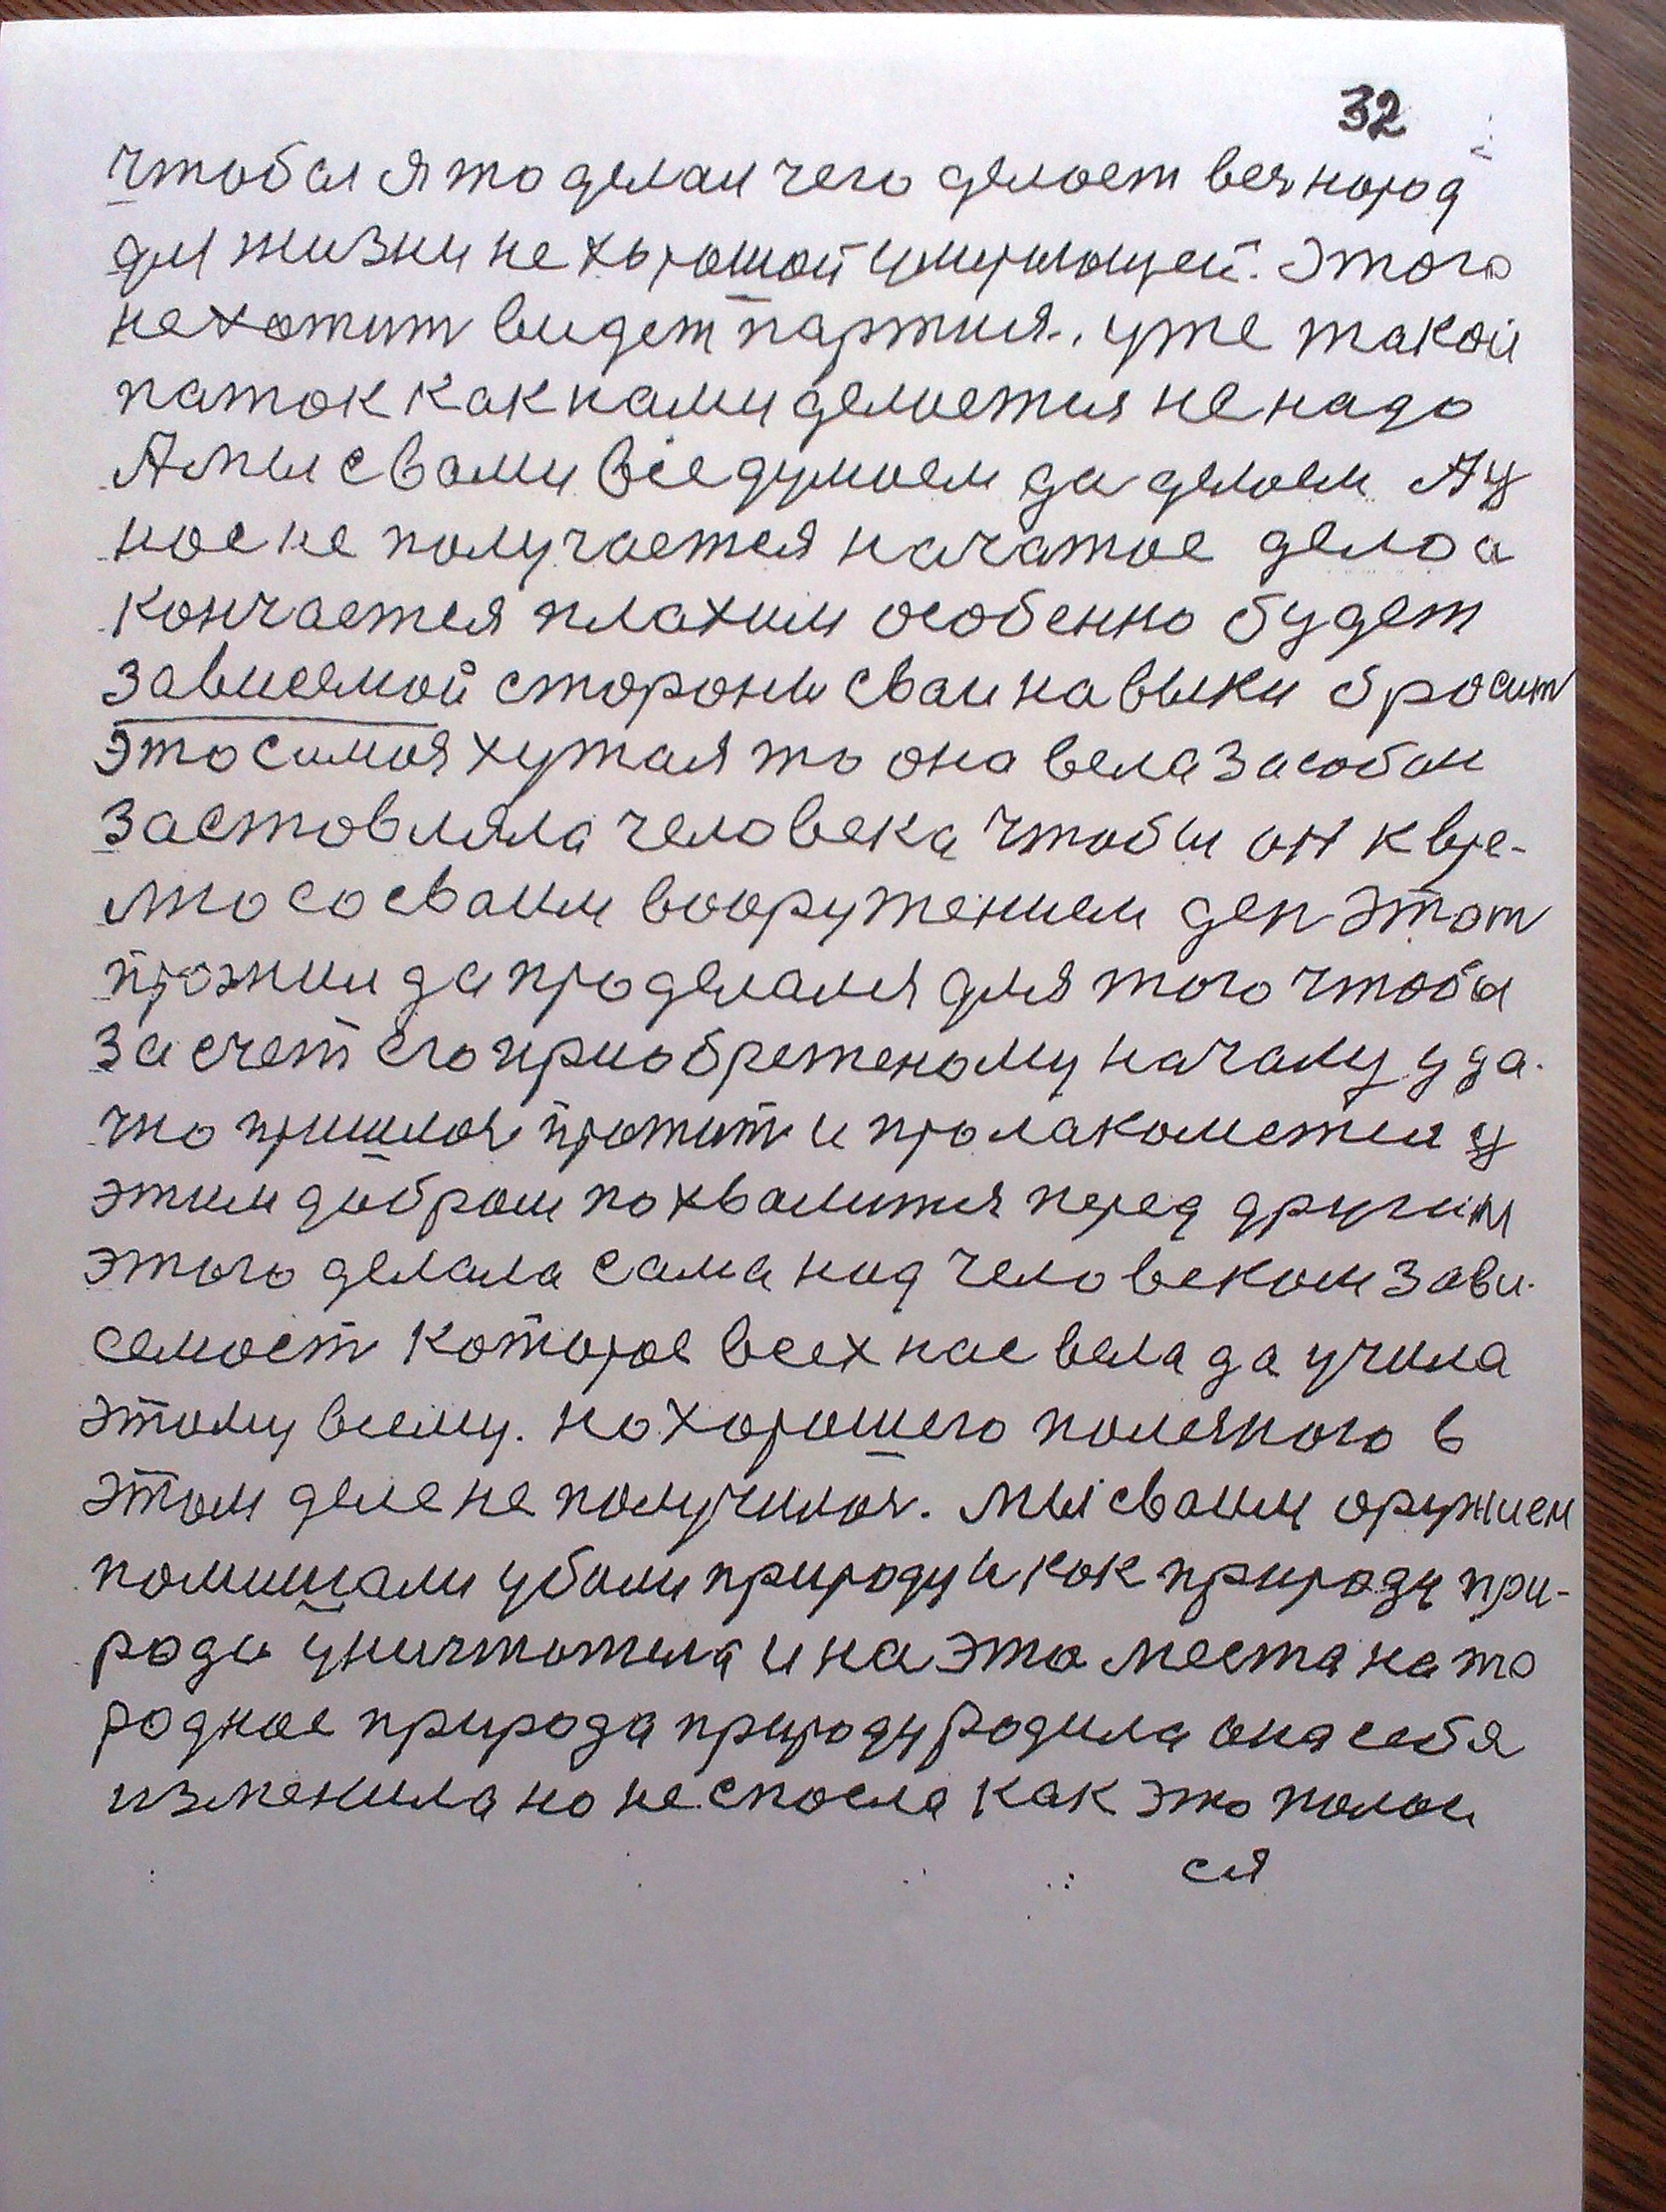 32
чтобы я то делал чего делает вся народ
для жизни не хорошой умирающей. Этого
не хотит видет партия, уже такой
паток как нами делается не надо
А мы с вами все думаем да делаем А у
нас не получается начатое дело а
кончается плахим особенно будет
зависемой стороны сваи навыки бросит
это самая хутая то она вела за собой
заставляла человека чтобы он к вре-
мю со сваим вооружением ден этот
прожил да проделался для того чтобы
за счет его приобретеному началу уда-
чно пришлос прожит и пролакомется у
этим добром похвалится перед другим
этого делала сама над человеком зави-
семост которое всех нас вела да учила
этому всему. но хорошего полезного в
этом деле не получилос. мы сваим оружием
помишали убили природу и как природу при-
рода уничтожила и на это места на то
родное природа природу родила она себя
изменила но не спосла как это полои
ся